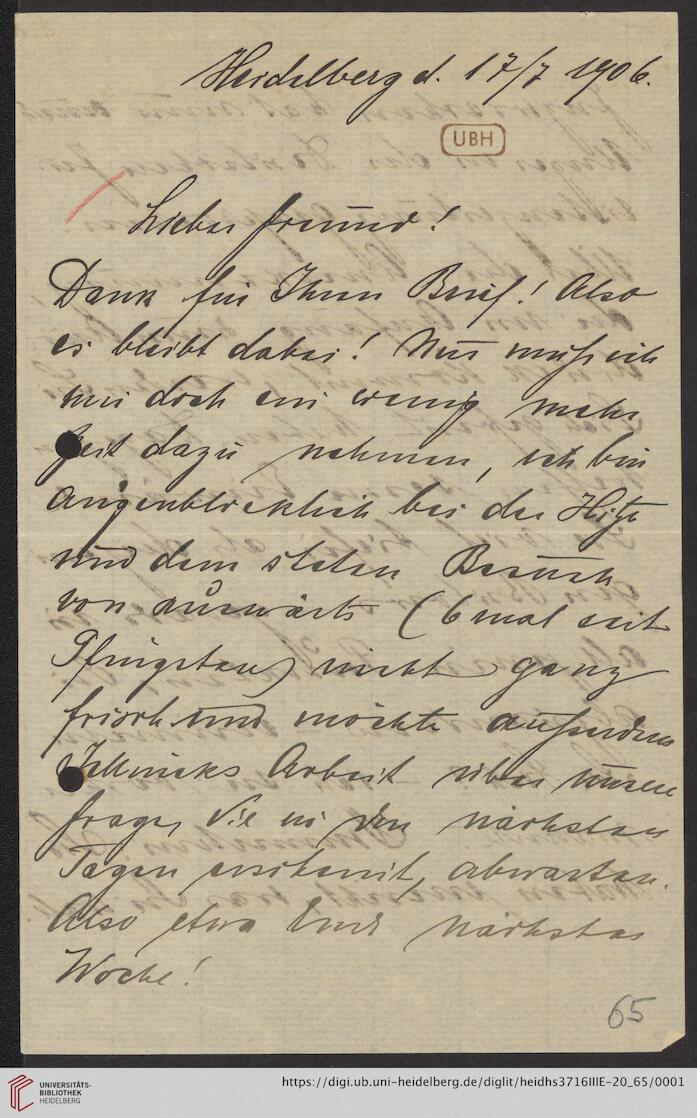 Heidelberg d. 17/7 1906.
UBH
Lieber Freund!
Dank für Ihren Brief! Also
es bleibt dabei! Nur muß ich
mir doch ein wenig mehr
Zeit dazu nehmen, ich bin
augenblicklich bei der Hitze
und dem steten Besuch
von auswärts (6 mal seit
Pfingsten) nicht ganz
frisch und möchte außerdem
Jellineks Arbeit über unsere
Frage, die in den nächsten
Tagen erscheint, abwarten.
Also etwa Ende nächster
Woche!
65
UNIVERSITÄTS-
BIBLIOTHEK
HEIDELBERG
https://digi.ub.uni-heidelberg.de/diglit/heidhs3716IIIE-20_65/0001